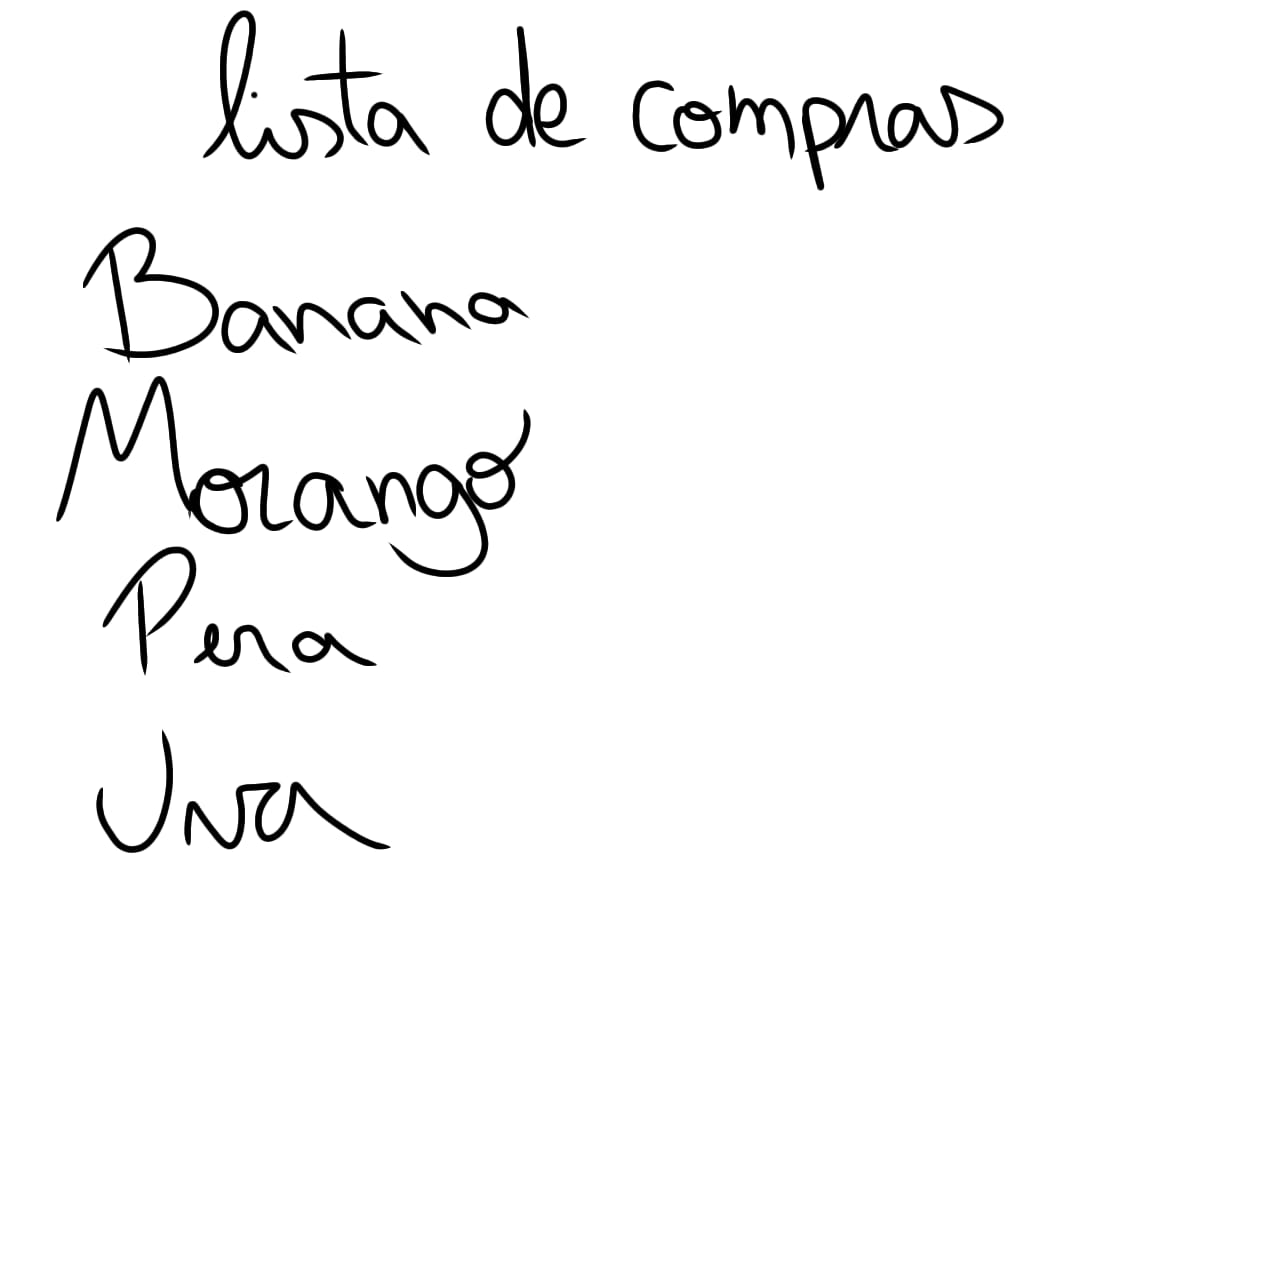 lista de compras
Banana
Morango
Pera
Uva